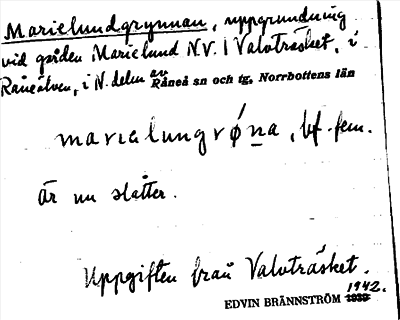 Marielundgrynnan, uppgrundning
vid gården Marielund NV. i Valvträsket, i
Råneälven, i N. delen av Råneå sn och tg, Norrbottens län
marıalungrǿna, bf. fem.
Är nu slåtter.
Uppgiften från Valvträsket.
EDVIN BRÄNNSTRÖM 1942.